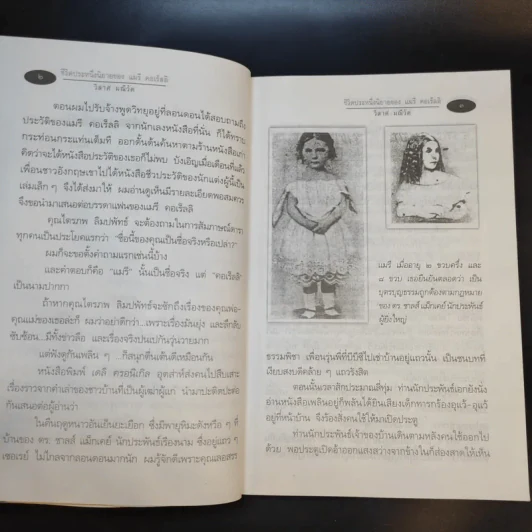 ๒
ชีวิตประหนึ่งนิยายของ แมรี คอเรลลิ
วิลาศ มณีวัต
ตอนผมไปรับจ้างพูดวิทยุอยู่ที่ลอนดอนได้สอบถามถึง
ประวัติของแมรี คอเรลลิ จากนักเลงหนังสือที่นั่น ก็ได้ทราบ
กระท่อนกระแท่นเต็มที ออกดั้นด้นค้นหาตามร้านหนังสือเก่า
คิดว่าจะได้หนังสือประวัติของเธอก็ไม่พบ บังเอิญเมื่อเดือนที่แล้ว
เพื่อนชาวอังกฤษเขาไปได้หนังสือชีวประวัติของนักแต่งผู้นี้เป็น
เล่มเล็ก ๆ จึงได้ส่งมาให้ ผมอ่านดูเห็นมีรายละเอียดพอสมควร
จึงขอนำมาเสนอต่อบรรดาแฟนของแมรี คอเรลลิ
คุณไตรภพ ลิมปพัทธ์ จะต้องถามในการสัมภาษณ์ดารา
ทุกคนเป็นประโยคแรกว่า "ชื่อนี้ของคุณเป็นชื่อจริงหรือเปล่า?"
ผมก็จะขอตั้งคำถามแรกเช่นนี้บ้าง
และคำตอบก็คือ "แมรี" นั้นเป็นชื่อจริง แต่ "คอเรลลิ"
เป็นนามปากกา
ถ้าหากคุณไตรภพ ลิมปพัทธ์จะซักถึงเรื่องของคุณพ่อ-
คุณแม่ของเธอล่ะก็ ผมว่าอย่าดีกว่า...เพราะเรื่องมันยุ่ง และลึกลับ
ซับซ้อน...มีทั้งข่าวลือ และเรื่องจริงปนเปกันวุ่นวายมาก
แต่ฟังดูก็เพลิน ๆ ...ก็สนุกตื่นเต้นดีเหมือนกัน
หนังสือพิมพ์ เดลี ครอนิเกิล อุตส่าห์ส่งคนไปสืบเสาะ
เรื่องราวจากคำเล่าของชาวบ้านที่เป็นผู้เฒ่าผู้แก่ นำมาปะติดปะต่อ
กันเสนอต่อผู้อ่านว่า
ในคืนฤดูหนาวอันเย็นยะเยือก ซึ่งมีพายุหิมะดังหวือ ๆ ที่
บ้านของ ดร. ชาลส์ แม็กเคย์ นักประพันธ์เรืองนาม ซึ่งอยู่แถว ๆ
เซอเรย์ ไม่ไกลจากลอนดอนมากนัก ผมรู้จักดีเพราะคุณเลอสรร
ชีวิตประหนึ่งนิยายของ แมรี คอเรลลิ
วิลาศ มณีวัต
๓
แมรี เมื่ออายุ ๒ ขวบครึ่ง และ
๘ ขวบ เธอยืนยันตลอดว่า เป็น
บุตรบุญธรรมถูกต้องตามกฎหมาย
ของ ดร. ชาลส์ แม็กเคย์ นักประพันธ์
ผู้ยิ่งใหญ่
ธรรมพิชา เพื่อนรุ่นพี่ที่บีบีซีไปเช่าบ้านอยู่แถวนั้น เป็นชนบทที่
เงียบสงบดีคล้าย ๆ แถวรังสิต
ตอนนั้นเวลาสักประมาณสี่ทุ่ม ท่านนักประพันธ์เอกยังนั่ง
อ่านหนังสือเพลินอยู่ก็พลันได้ยินเสียงเด็กทารกร้องอุแว้-อุแว้
อยู่ที่หน้าบ้าน จึงร้องสั่งคนใช้ให้มาเปิดประตู
ท่านนักประพันธ์เจ้าของบ้านเดินตามหลังคนใช้ออกไป
ด้วย พอประตูเปิดอ้าออกแสงสว่างจากข้างในก็ส่องสาดให้เห็น